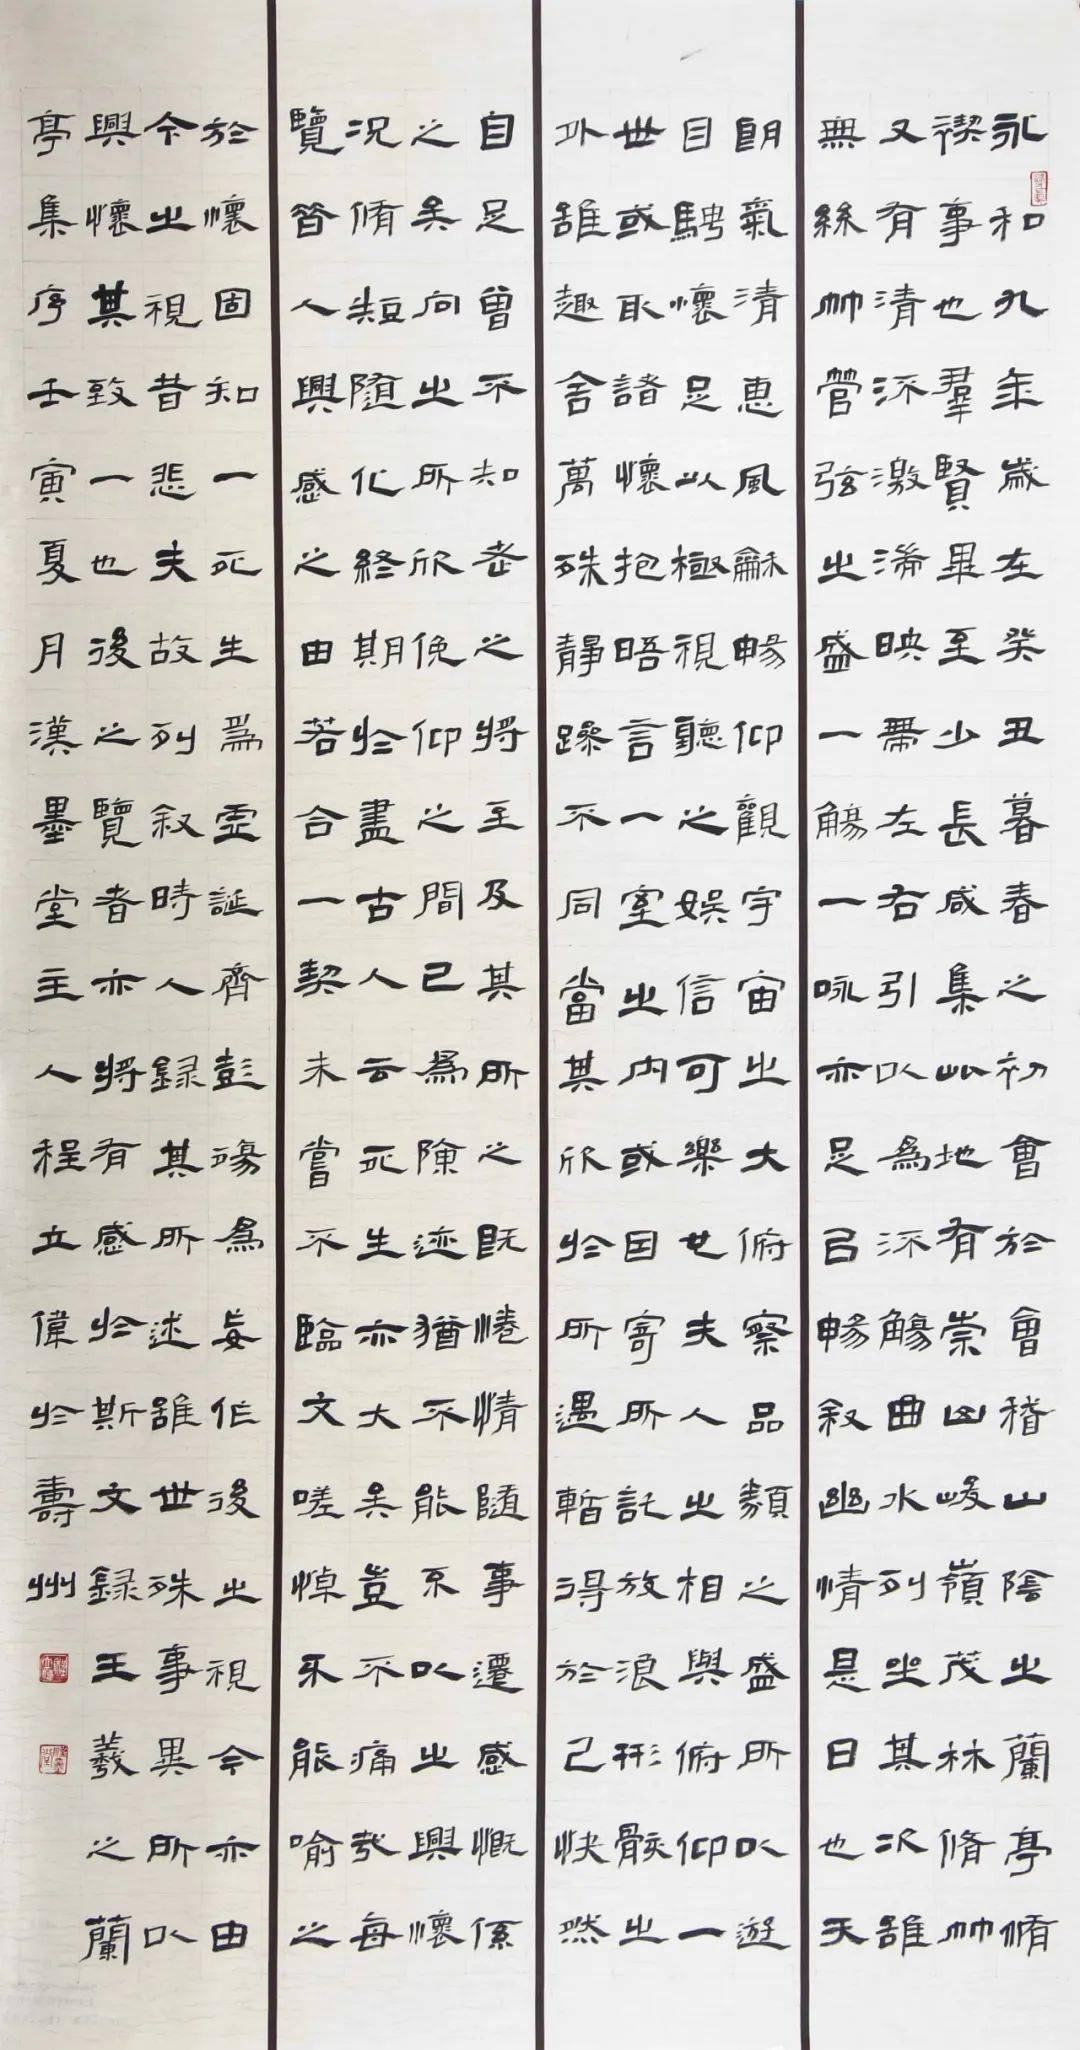 永和九年歲在癸丑暮春之初會於會稽山陰之蘭亭脩
禊事也羣賢畢至少長咸集此地有崇山峻嶺茂林脩竹
又有清流激湍映帶左右引以為流觴曲水列坐其次雖
無絲竹管弦之盛一觴一咏亦足㠯暢叙幽情是日也天
朗氣清惠風龢暢仰觀宇宙之大俯察品類之盛所以遊
目騁懷足以極視聽之娛信可樂也夫人之相與俯仰一
世或取諸懷抱晤言一室之內或因寄所託放浪形骸之
外雖趣舍萬殊靜躁不同當其欣於所遇暫得於己快然
自足曾不知老之將至及其所之既惓情隨事遷感慨係
之矣向之所欣俛仰之間已為陳迹猶不能不以之興懷
況脩短隨化終期於盡古人云死生亦大矣豈不痛哉每
覽昔人興感之由若合一契未嘗不臨文嗟悼不能喻之
於懷固知一死生為虛誕齊彭殤為妄作後之視今亦由
今之視昔悲夫故列叙時人錄其所述雖世殊事異所以
興懷其致一也後之覽者亦將有感於斯文錄王羲之蘭
亭集序壬寅夏月漢墨堂主人程立偉於壽州